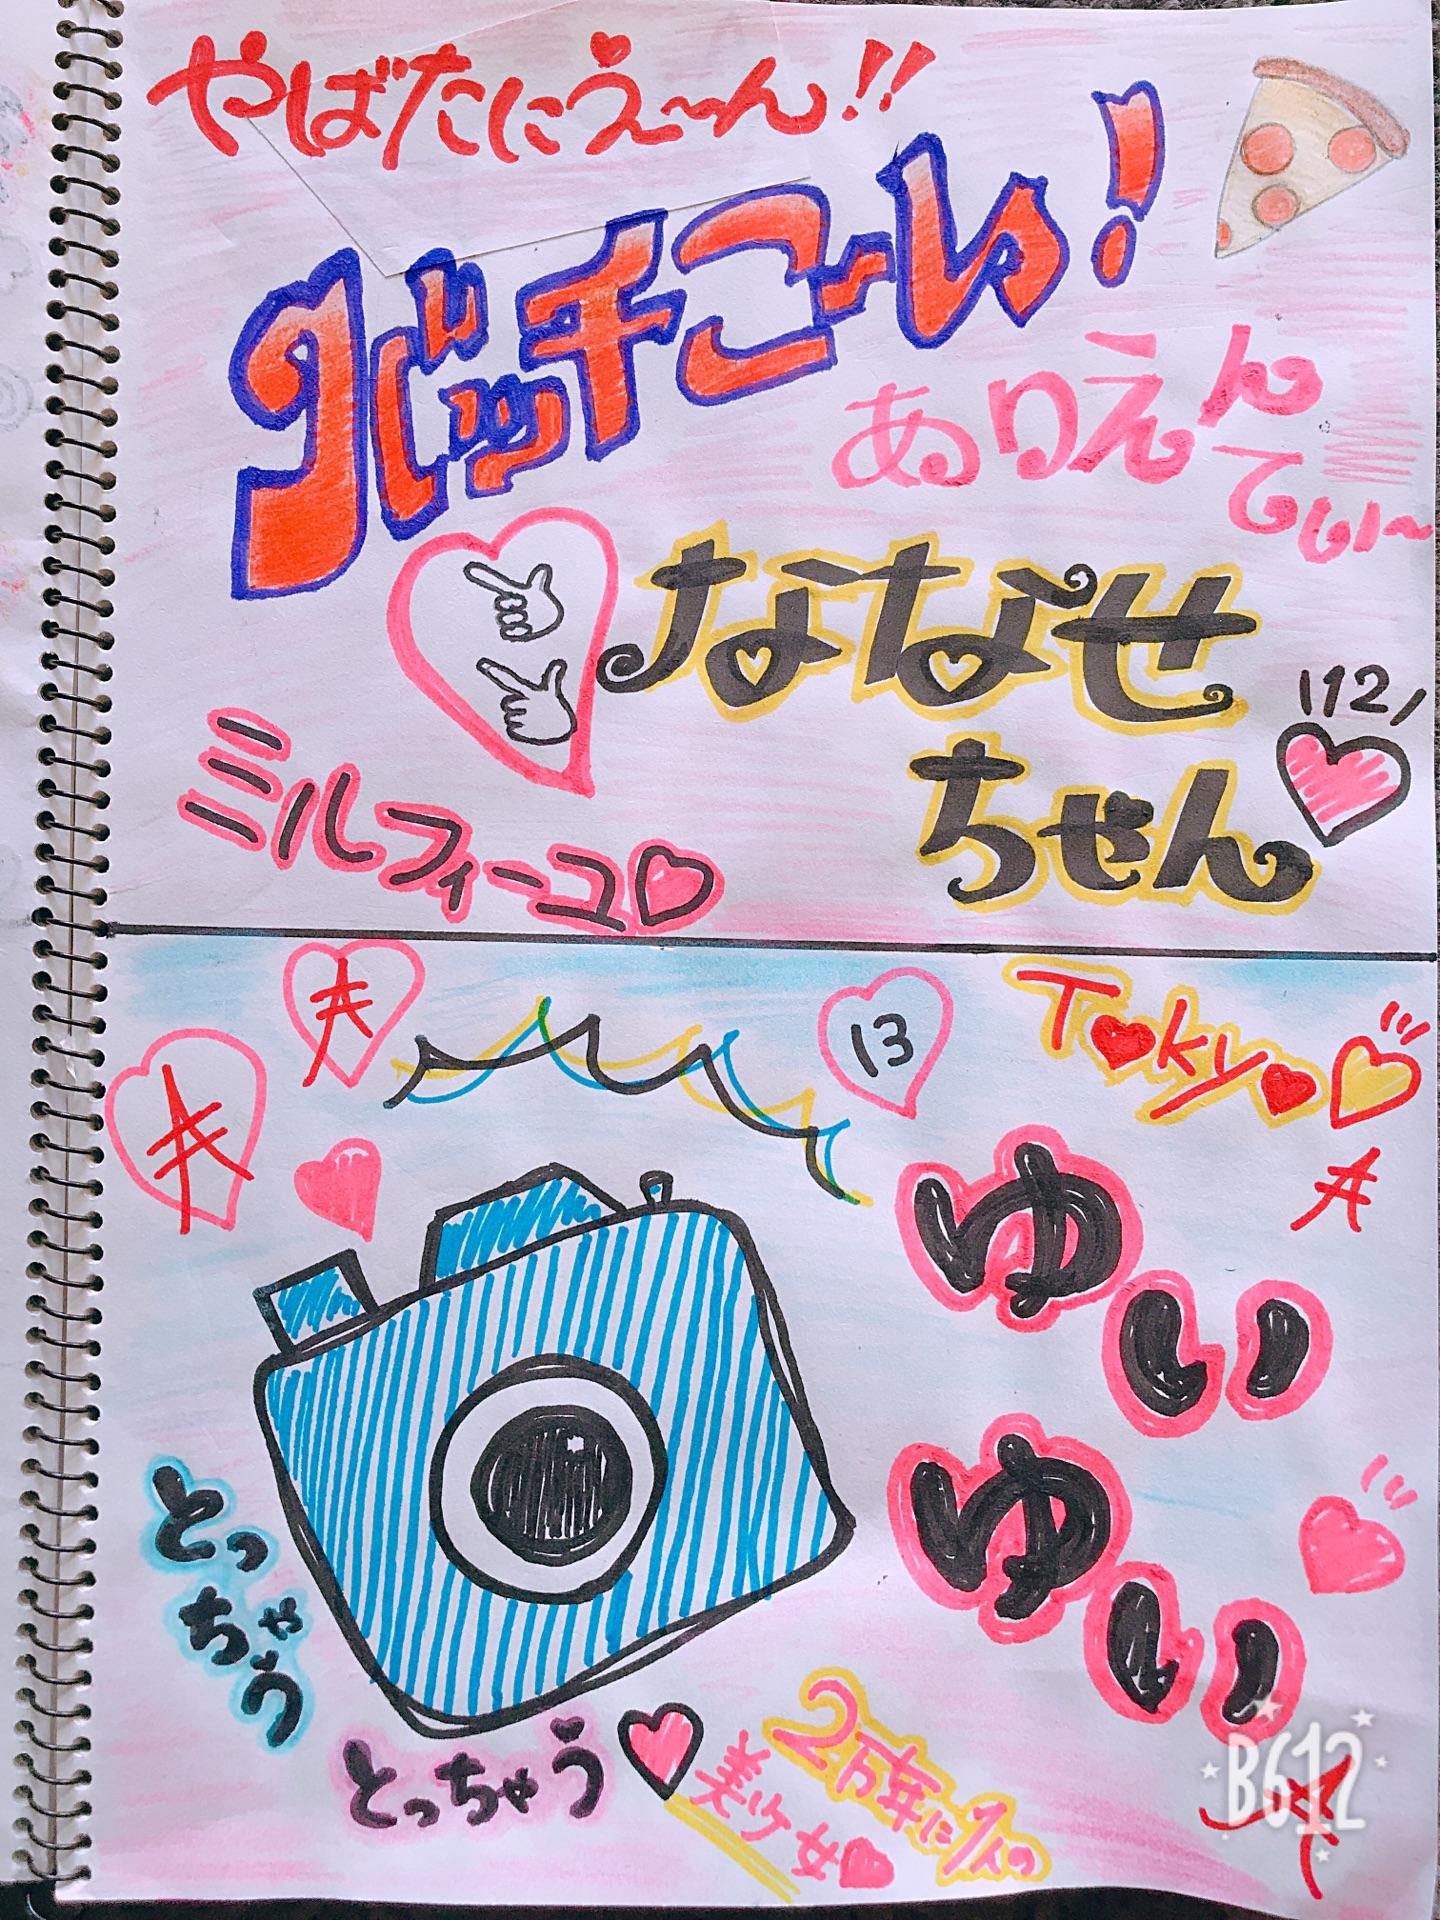 やばたにえ〜ん!!
バッチこーい!
ありえん
てぃ〜
ななせ
\12/
ちゃん
ミルフィーユ
13
Tokyo
ゆい
ゆい
とっ
ちゃ
う
とっちゃう
2万年に1人の
美少女
B612